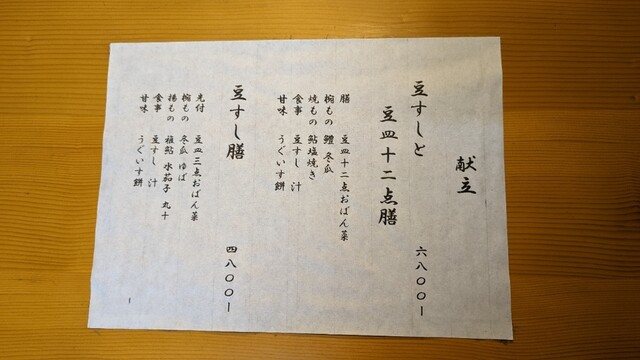 献立
豆すしと
豆皿十二点膳 六八〇〇ー
膳 豆皿十二点おばん菜
椀もの 鱧 冬瓜
焼もの 鮎塩焼き
食事 豆すし 汁
甘味 うぐいす餅
豆すし膳 四八〇〇ー
先付 豆皿三点おばん菜
椀もの 冬瓜 ゆば
揚もの 稚鮎 水茄子 丸十
食事 豆すし 汁
甘味 うぐいす餅